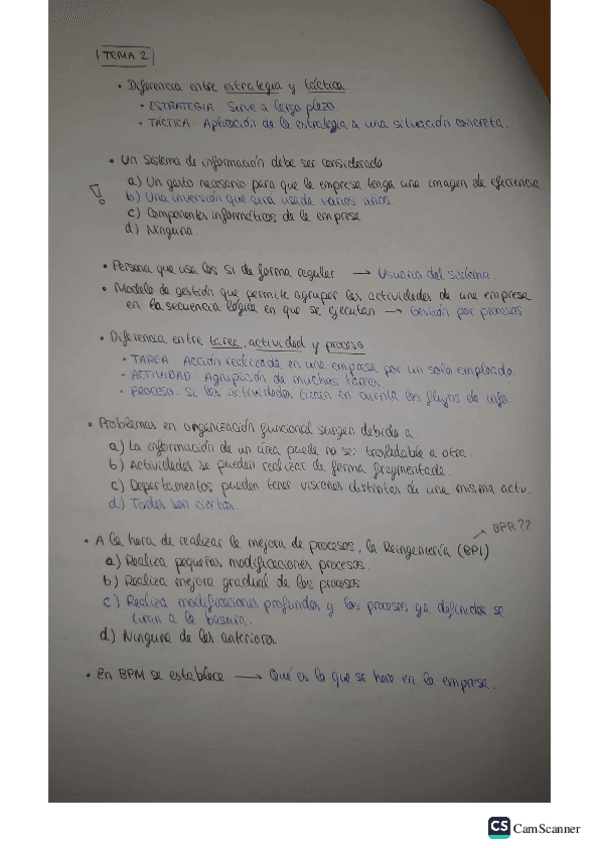 TEMA 2
• Diferencia entre estrategia y táctica
• ESTRATEGIA: Sirve a largo plazo.
• TÁCTICA: Aplicación de la estrategia a una situación concreta.
• Un sistema de información debe ser considerado
a) Un gasto necesario para que la empresa tenga una imagen de eficiencia.
b) Una inversión que será usada varios años.
c) Componentes informáticos de la empresa
d) Ninguna.
• Persona que usa los SI de forma regular → Usuario del sistema.
• Modelo de gestión que permite agrupar las actividades de una empresa
en la secuencia lógica en que se ejecutan → Gestión por procesos.
• Diferencia entre tarea, actividad y proceso
• TAREA: Acción realizada en una empresa por un solo empleado.
• ACTIVIDAD: Agrupación de muchas tareas.
• PROCESO: Si las actividades tienen en cuenta los flujos de info.
• Problemas en organización funcional surgen debido a
a) La información de un área puede no ser trasladable a otra.
b) Actividades se pueden realizar de forma fragmentada.
c) Departamentos pueden tener visiones distintas de una misma actv.
d) Todas son ciertas.
BPR??
• A la hora de realizar la mejora de procesos, la Reingeniería (BPI)
a) Realiza pequeñas modificaciones procesos.
b) Realiza mejora gradual de los procesos
c) Realiza modificaciones profundas y los procesos ya definidos se
tiran a la basura.
d) Ninguna de las anteriores
• En BPM se establece → Qué es lo que se hace en la empresa.
CS CamScanner